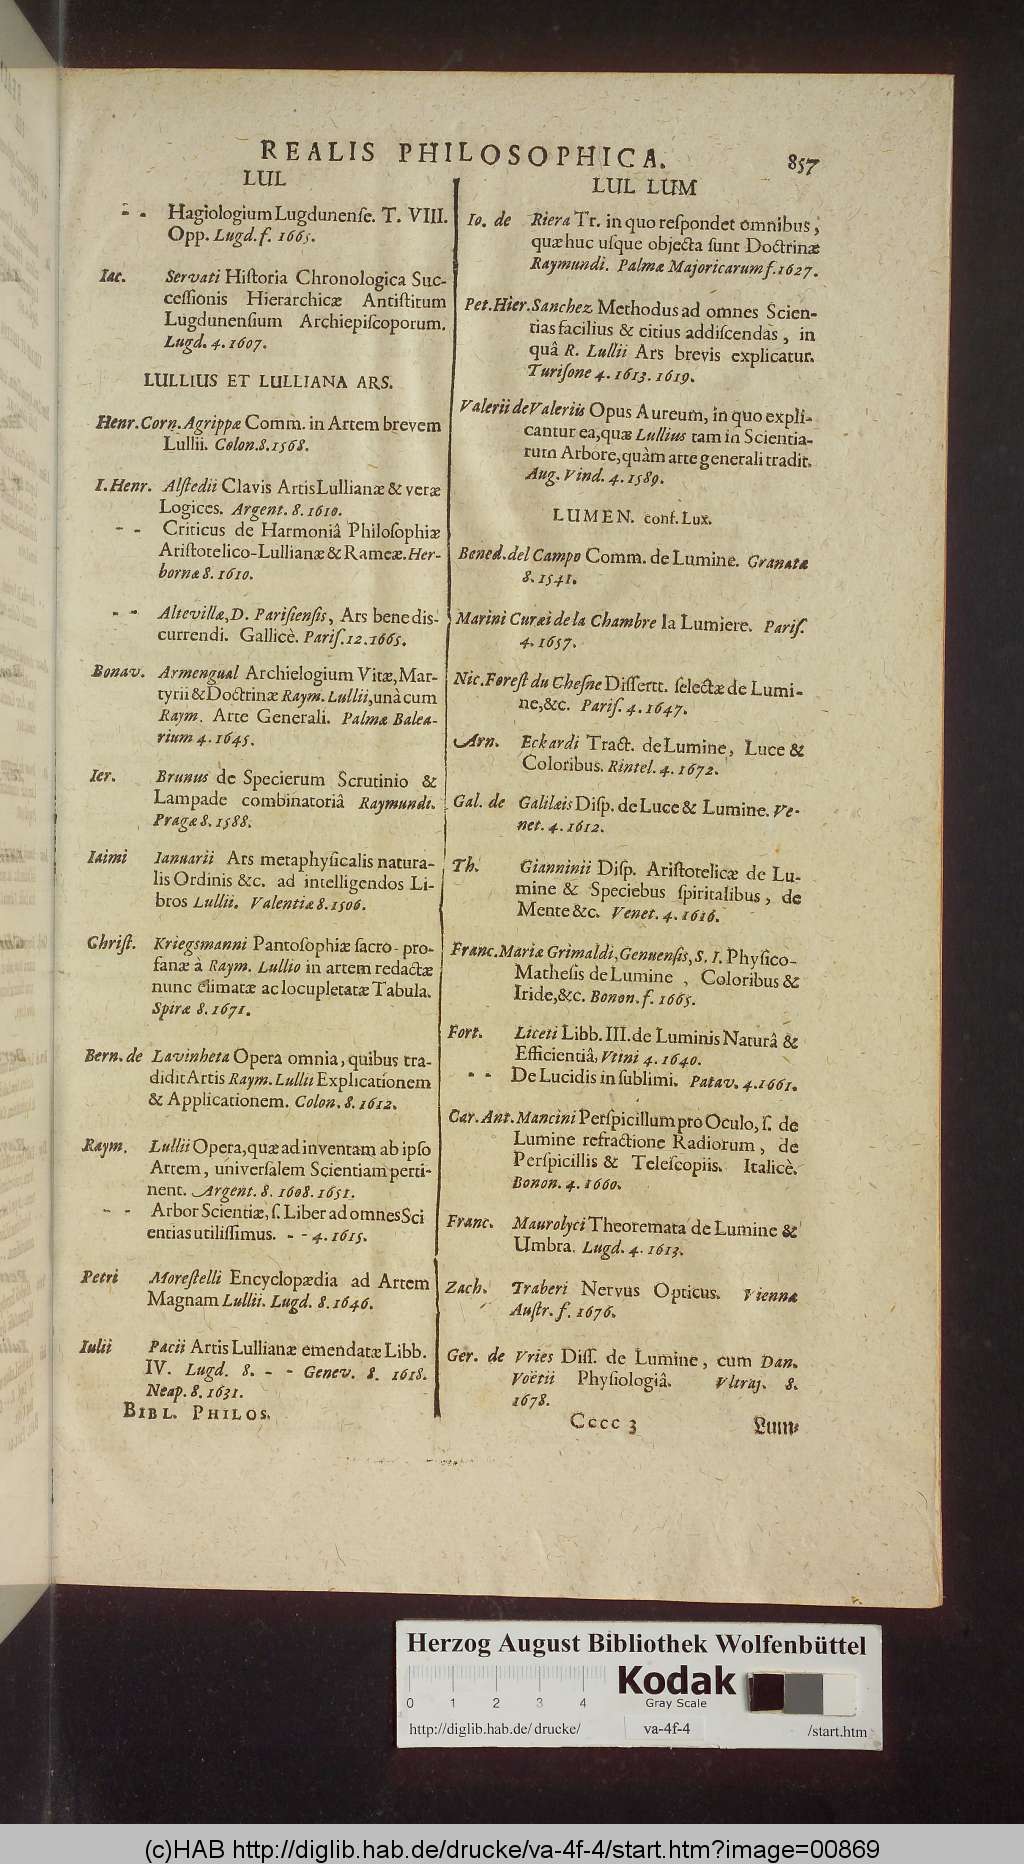 REALIS PHILOSOPHICA. 857
LUL
- - Hagiologium Lugdunenſe. T. VIII.
Opp. Lugd. f. 1665.
Iac. Servati Hiſtoria Chronologica Suc-
ceſſionis Hierarchicæ Antiſtitum
Lugdunenſium Archiepiſcoporum.
Lugd. 4. 1607.
LULLIUS ET LULLIANA ARS.
Henr. Corn. Agrippæ Comm. in Artem brevem
Lullii. Colon. 8. 1568.
I. Henr. Alſtedii Clavis Artis Lullianæ & veræ
Logices. Argent. 8. 1610.
- - Criticus de Harmoniâ Philoſophiæ
Ariſtotelico-Lullianæ & Rameæ. Her-
bornæ 8. 1610.
- - Altevillæ, D. Pariſienſis, Ars bene diſ-
currendi. Gallicè. Pariſ. 12. 1665.
Bonav. Armengual Archielogium Vitæ, Mar-
tyrii & Doctrinæ Raym. Lullii, unà cum
Raym. Arte Generali. Palmæ Balea-
rium 4. 1645.
Ier. Brunus de Specierum Scrutinio &
Lampade combinatoriâ Raymundi.
Pragæ 8. 1588.
Iaimi Ianuarii Ars metaphyſicalis natura-
lis Ordinis &c. ad intelligendos Li-
bros Lullii. Valentiæ 8. 1506.
Chriſt. Kriegsmanni Pantoſophiæ ſacro-pro-
fanæ à Raym. Lullio in artem redactæ
nunc elimatæ ac locupletatæ Tabula.
Spiræ 8. 1671.
Bern. de Lavinheta Opera omnia, quibus tra-
didit Artis Raym. Lullii Explicationem
& Applicationem. Colon. 8. 1612.
Raym. Lullii Opera, quæ ad inventam ab ipſo
Artem, univerſalem Scientiam perti-
nent. Argent. 8. 1608. 1651.
- - Arbor Scientiæ, ſ. Liber ad omnes Sci
entias utiliſſimus. - - 4. 1615.
Petri Moreſtelli Encyclopædia ad Artem
Magnam Lullii. Lugd. 8. 1646.
Iulii Pacii Artis Lullianæ emendatæ Libb.
IV. Lugd. 8. - - Genev. 8. 1618.
Neap. 8. 1631.
BIBL. PHILOS.
LUL LUM
Io. de Riera Tr. in quo reſpondet omnibus,
quæ huc uſque objecta ſunt Doctrinæ
Raymundi. Palmæ Majoricarum f. 1627.
Pet. Hier. Sanchez Methodus ad omnes Scien-
tias facilius & citius addiſcendas, in
quâ R. Lullii Ars brevis explicatur.
Turiſone 4. 1613. 1619.
Valerii de Valeriis Opus Aureum, in quo expli-
cantur ea, quæ Lullius tam in Scientia-
rum Arbore, quàm arte generali tradit.
Aug. Vind. 4. 1589.
LUMEN. conf. Lux.
Bened. del Campo Comm. de Lumine. Granatæ
8. 1541.
Marini Curæi de la Chambre la Lumiere. Pariſ.
4. 1657.
Nic. Foreſt du Cheſne Diſſertt. ſelectæ de Lumi-
ne, &c. Pariſ. 4. 1647.
Arn. Eckardi Tract. de Lumine, Luce &
Coloribus. Rintel. 4. 1672.
Gal. de Galilæis Diſp. de Luce & Lumine. Ve-
net. 4. 1612.
Th. Gianninii Diſp. Ariſtotelicæ de Lu-
mine & Speciebus ſpiritalibus, de
Mente &c. Venet. 4. 1616.
Franc. Mariæ Grimaldi, Genuenſis, S. I. Phyſico-
Matheſis de Lumine, Coloribus &
Iride, &c. Bonon. f. 1665.
Fort. Liceti Libb. III. de Luminis Naturâ &
Efficientiâ, Vtini 4. 1640.
- - De Lucidis in ſublimi. Patav. 4. 1661.
Car. Ant. Mancini Perſpicillum pro Oculo, ſ. de
Lumine refractione Radiorum, de
Perſpicillis & Teleſcopiis. Italicè.
Bonon. 4. 1660.
Franc. Maurolyci Theoremata de Lumine &
Umbra. Lugd. 4. 1613.
Zach. Traberi Nervus Opticus. Viennæ
Auſtr. f. 1676.
Ger. de Vries Diſſ. de Lumine, cum Dan.
Voëtii Phyſiologiâ. Vltraj. 8.
1678.
Cccc 3 Lum-
Herzog August Bibliothek Wolfenbüttel
0 1 2 3 4
Kodak
Gray Scale
http://diglib.hab.de/drucke/ va-4f-4 /start.htm
(c)HAB http://diglib.hab.de/drucke/va-4f-4/start.htm?image=00869